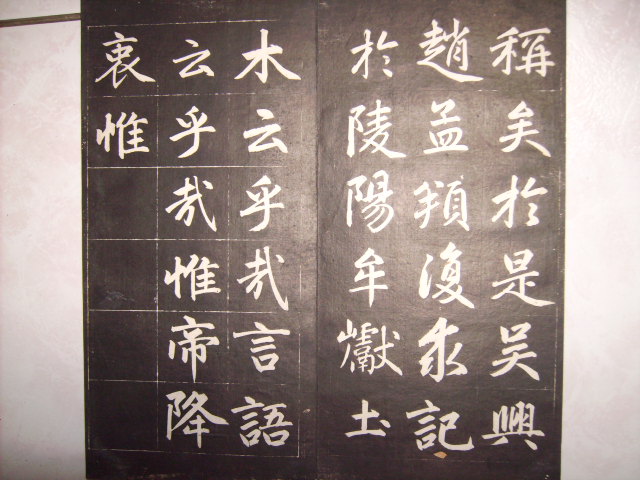 稱矣於是吴興
趙孟頫復求記
於陵陽牟巘土
木云乎哉言語
云乎哉惟帝降
衷惟